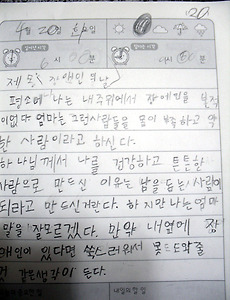 '20.
4월 20일 화요일
6시 00분
제목 장애인의 날
평소에 나는 내 주위에서 장애인을 본적
이 없다 엄마는 그런사람들을 몸이 부족하고 약
한 사람이라고 하신다.
하나님께서 나를 건강하고 튼튼한
사람으로 만드신 이유는 남을 돕는 사람이
되라고 만드신거란다. 하지만 나는 엄마
말을 잘모르겠다. 만약 내옆에 장
애인이 있다면 쑥스러워서 못도와줄
것 같은생각이 든다.
내일의 할 일